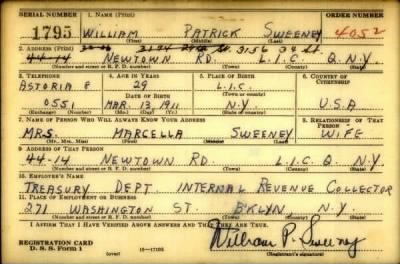 SERIAL NUMBER 1. NAME (Print) ORDER NUMBER
1795 WILLIAM PATRICK SWEENEY 4052
(First) (Middle) (Last)
2. ADDRESS (Print) 3156
44-14 NEWTOWN RD. L.I.C. Q. N.Y.
(Number and street or R. F. D. number) (Town) (County) (State)
3. TELEPHONE 4. AGE IN YEARS 5. PLACE OF BIRTH 6. COUNTRY OF CITIZENSHIP
ASTORIA 8 29 L.I.C.
DATE OF BIRTH (Town or county)
0551 MAR. 13, 1911 N.Y. U.S.A
(Exchange) (Number) (Mo.) (Day) (Yr.) (State or country)
7. NAME OF PERSON WHO WILL ALWAYS KNOW YOUR ADDRESS 8. RELATIONSHIP OF THAT PERSON
MRS. MARCELLA SWEENEY WIFE
(Mr., Mrs., Miss) (First) (Middle) (Last)
9. ADDRESS OF THAT PERSON
44-14 NEWTOWN RD. L.I.C. Q. N.Y.
(Number and street or R. F. D. number) (Town) (County) (State)
10. EMPLOYER'S NAME
TREASURY DEPT. INTERNAL REVENUE COLLECTOR
11. PLACE OF EMPLOYMENT OR BUSINESS
271 WASHINGTON ST. B'KLYN N.Y.
(Number and street or R. F. D. number) (Town) (County) (State)
I AFFIRM THAT I HAVE VERIFIED ABOVE ANSWERS AND THAT THEY ARE TRUE.
REGISTRATION CARD
D. S. S. FORM 1 (over) 16—17105 William P. Sweeney
(Registrant's signature)